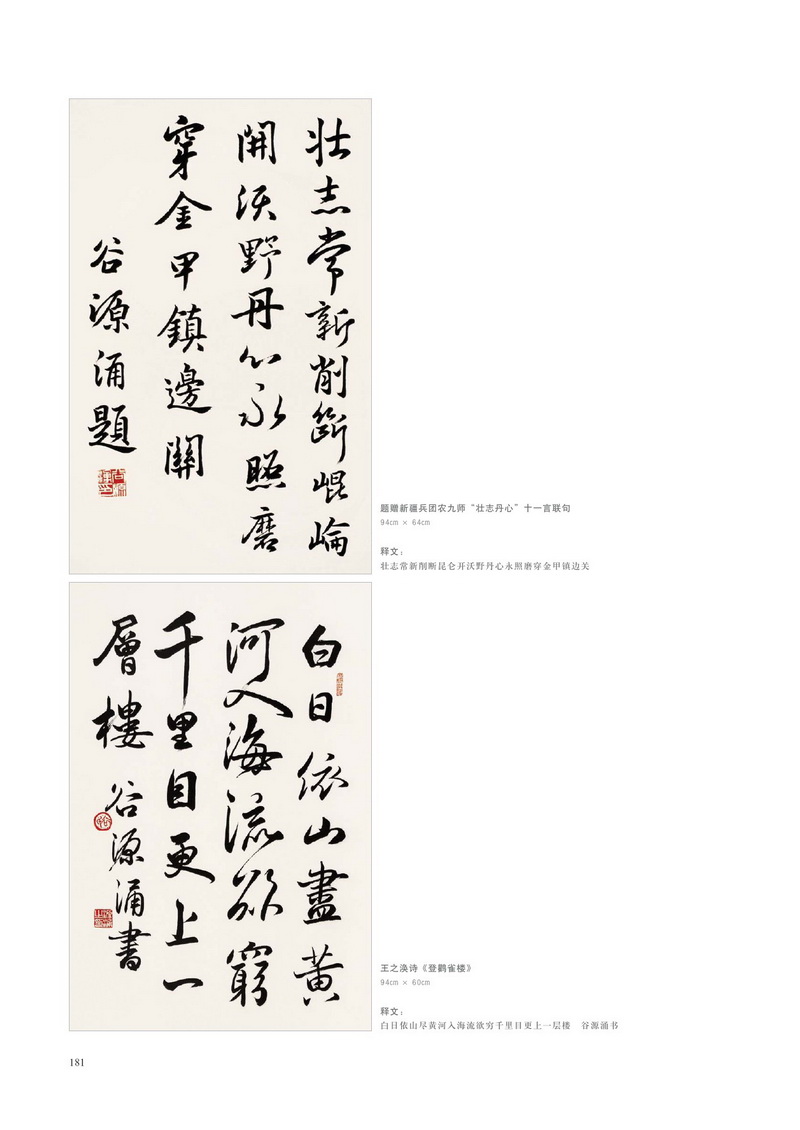 壮志常新削斷崐崘
開沃野丹心永照磨
穿金甲鎮邊關
谷源涌題
题赠新疆兵团农九师“壮志丹心”十一言联句
94cm × 64cm
释文：
壮志常新削断昆仑开沃野丹心永照磨穿金甲镇边关
白日依山盡黄
河入海流欲窮
千里目更上一
層樓
谷源涌書
王之涣诗《登鹳雀楼》
94cm × 60cm
释文：
白日依山尽黄河入海流欲穷千里目更上一层楼　谷源涌书
181